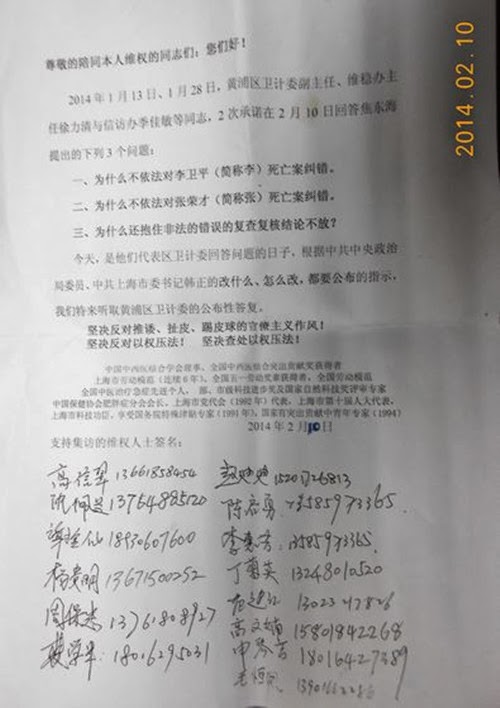 2014.02.10
尊敬的陪同本人维权的同志们：您们好！
2014年1月13日、1月28日，黄浦区卫计委副主任、维稳办主
任徐力清与信访办李佳敏等同志，2次承诺在2月10日回答焦东海
提出的下列3个问题：
一、为什么不依法对李卫平（简称李）死亡案纠错。
二、为什么不依法对张荣才（简称张）死亡案纠错。
三、为什么还抱住非法的错误的复查复核结论不放？
今天，是他们代表区卫计委回答问题的日子，根据中共中央政治
局委员、中共上海市委书记韩正的改什么、怎么改，都要公布的指示，
我们特来听取黄浦区卫计委的公布性答复。
坚决反对推诿、扯皮、踢皮球的官僚主义作风！
坚决反对以权压法！ 坚决查处以权压法！
中国中西医结合学会理事、全国中西医结合突出贡献奖获得者
上海市劳动模范（连续6年）、全国五一劳动奖章获得者、全国劳动模范
全国中医治疗急症先进个人，部、市级科技进步奖及国家自然科技奖评审专家
中国保健协会肥胖症分会会长，上海市党代会（1992年）代表，上海市第十届人大代表，
上海市科技功臣，享受国务院特殊津贴专家（1991年），国家有突出贡献中青年专家（1994）
2014年2月10日
支持集访的维权人士签名：
13661858454
13764885120
18930607600
杨贵明 13671500252
周保 13761808927
18016295031
15201726813
陈启勇 13585973365
李 13585973365
丁菊英 13248010520
高文 15801842268
申 18016427389